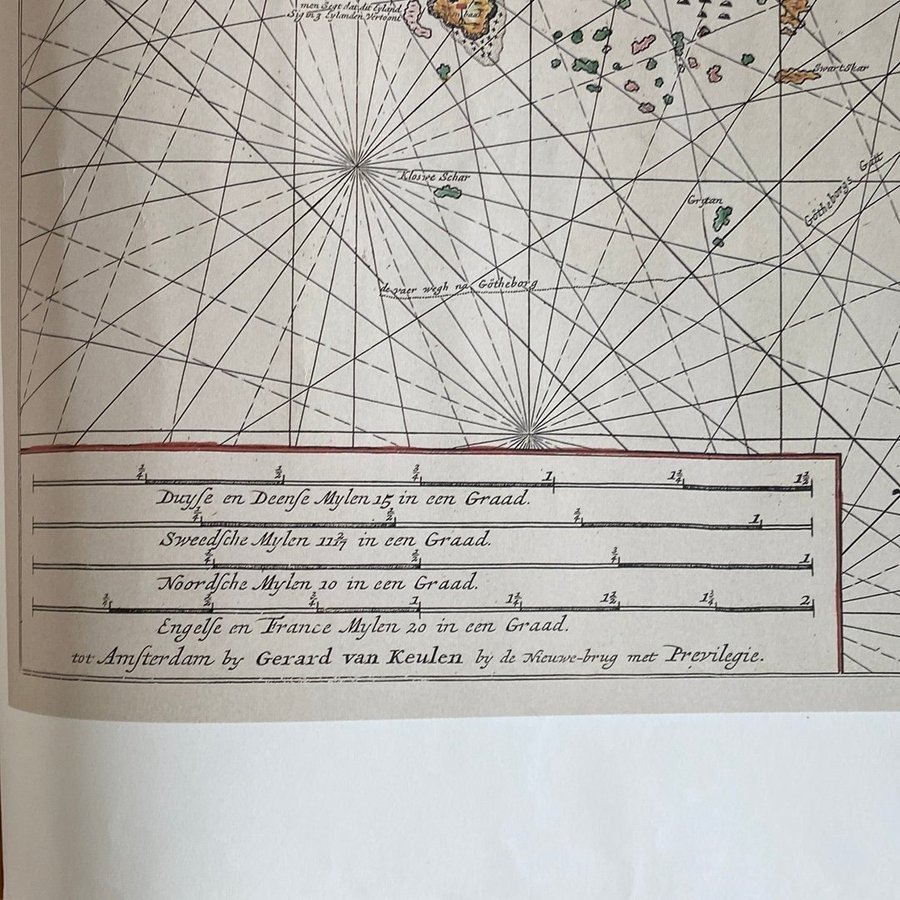 men Segt dat dit Eyland
Sig in 3 Eylanden Vertoont
Swartskar
Klosve Schar
Göthebörgs Gatt
Grstan
de vaer wegh na Götheborg
1/4 1/2 3/4 1 1 1/4 1 1/2
Duysse en Deense Mylen 15 in een Graad.
1/4 1/2 3/4 1
Sweedsche Mylen 11 3/7 in een Graad.
1/4 1/2 3/4 1
Noordsche Mylen 10 in een Graad.
1/4 1/2 3/4 1 1 1/4 1 1/2 1 3/4 2
Engelse en France Mylen 20 in een Graad.
tot Amsterdam by Gerard van Keulen by de Nieuwe-brug met Previlegie.